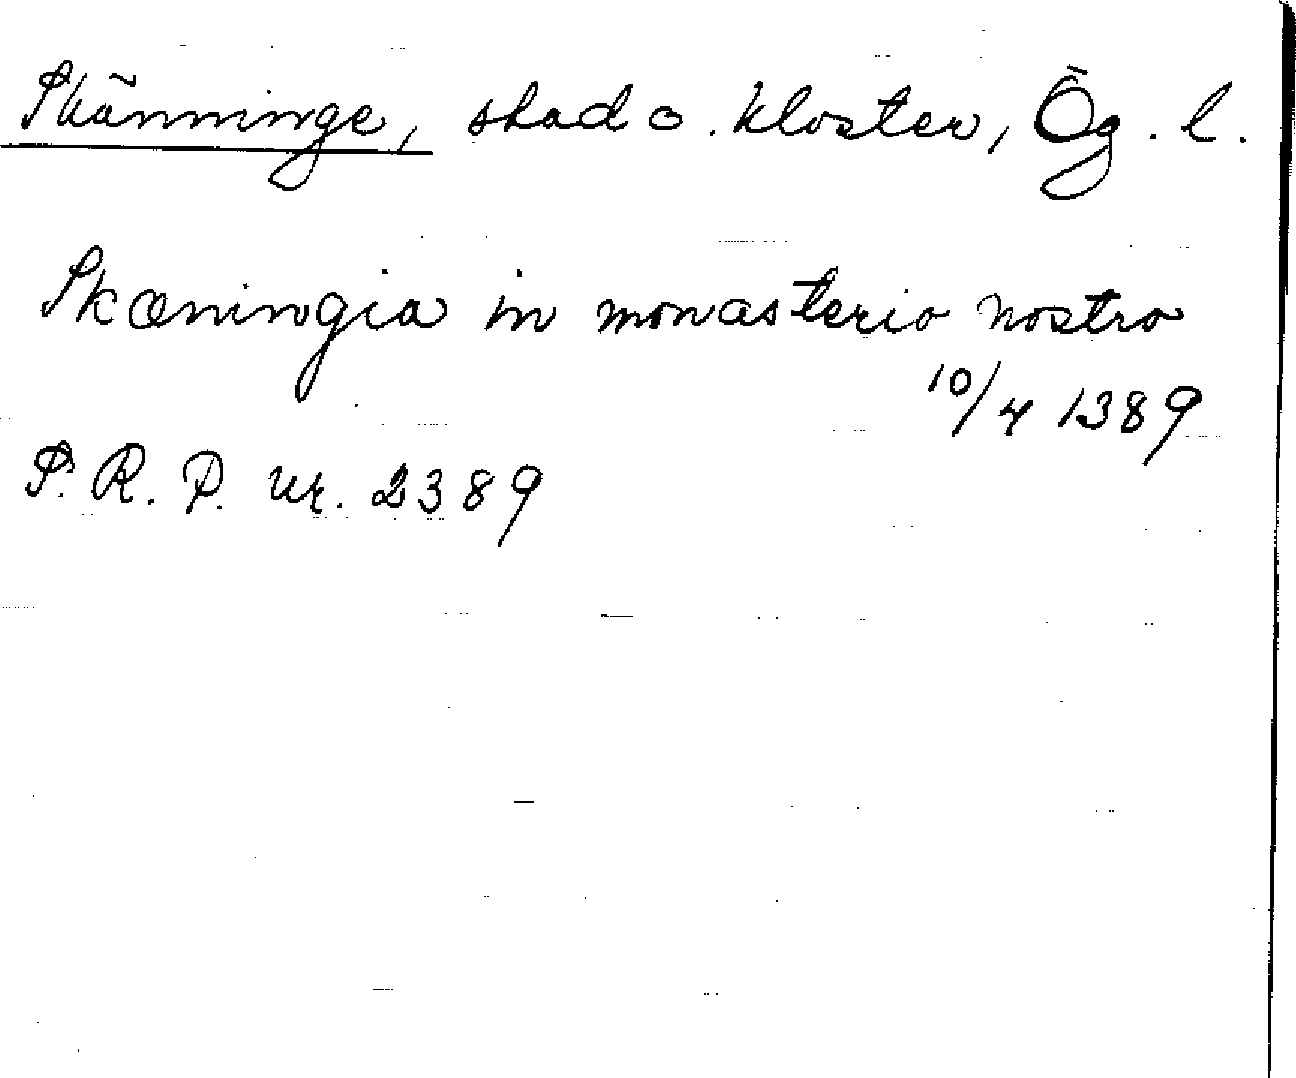 Skänninge, stad o. kloster, Ög. l.
Skæningia in monasterio nostro
10/4 1389
S. R. P. nr. 2389